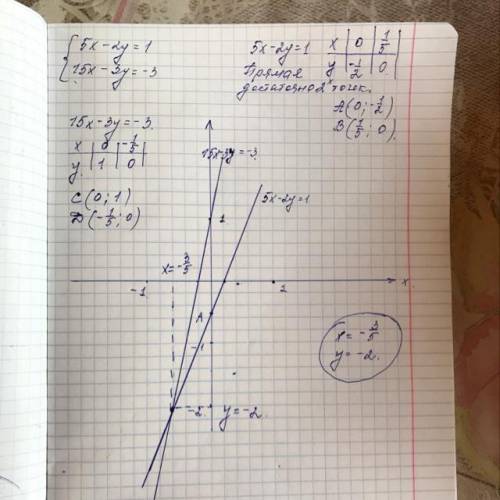 { 5x-2y=1
15x-3y=-3
5x-2y=1
x | 0 | 1/5
y | -1/2 | 0
Прямая
достаточно 2 точк.
A(0;-1/2)
B(1/5; 0)
15x-3y=-3.
x | 0 | -1/5
y | 1 | 0
C(0; 1)
D(-1/5; 0)
15x-3y=-3.
5x-2y=1
1
x=-3/5
-1
2
x
A
-1
x=-3/5
y=-2.
-2
y=-2